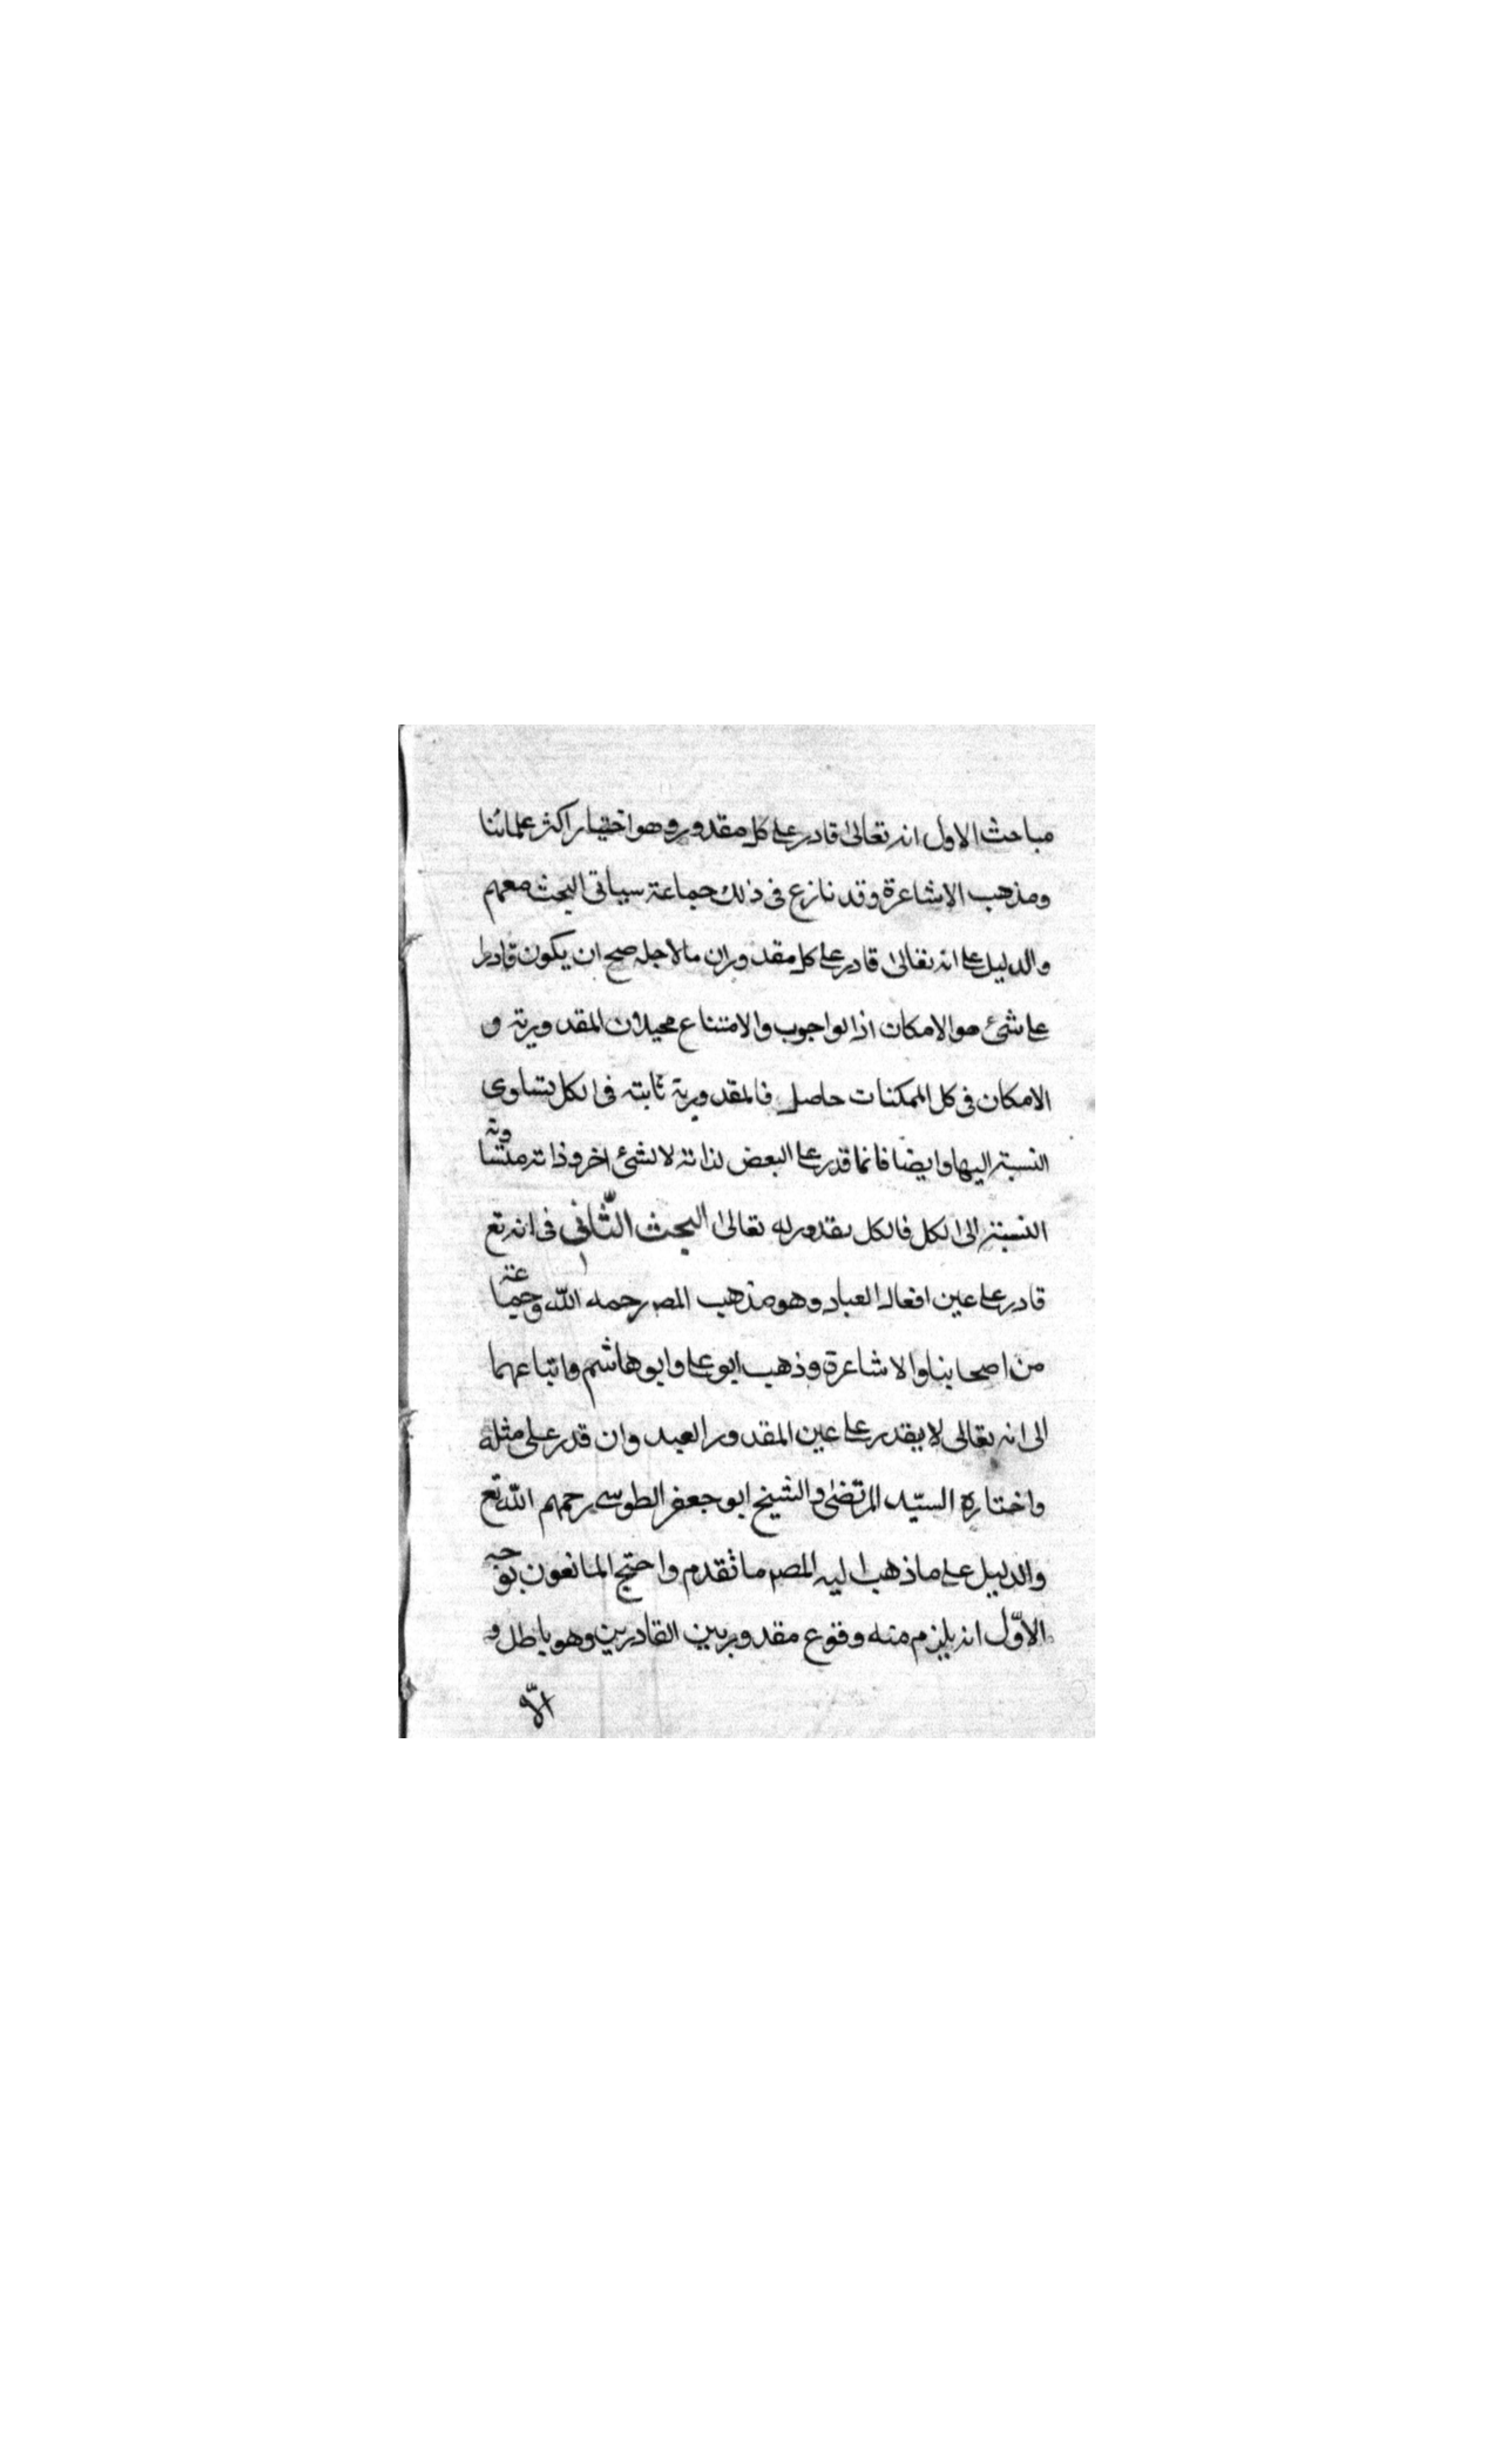 مباحث الاول انه تعالى قادر على كل مقدور وهو اختيار اكثر علمائنا
ومذهب الاشاعرة وقد نازع فى ذلك جماعة سياتى البحث معهم
والدليل على انه تعالى قادر على كل مقدور ان ما لاجله صح ان يكون قادرا
على شئ هو الامكان اذ الواجوب والامتناع محيلان المقدورية و
الامكان فى كل الممكنات حاصل فالمقدورية ثابته فى الكل يتساوى
النسبة اليها وايضا فانما قدر على البعض لذاته لا لشئ اخر وذاته متساوية
النسبة الى الكل فالكل مقدور له تعالى البحث الثّانى فى انه تع
قادر على عين افعال العباد وهو مذهب المص رحمه الله وجماعة
من اصحابنا والاشاعرة وذهب ابو على وابو هاشم واتباعهما
الى انه تعالى لا يقدر على عين المقدور العبد وان قدر على مثله
واختاره السيّد المرتضى والشيخ ابو جعفر الطوسى رحمهم الله تع
والدليل على ما ذهب اليه المص ما تقدم واحتج المانعون بوجه
الاوّل انه يلزم منه وقوع مقدور بين القادرين وهو باطل و
الّا